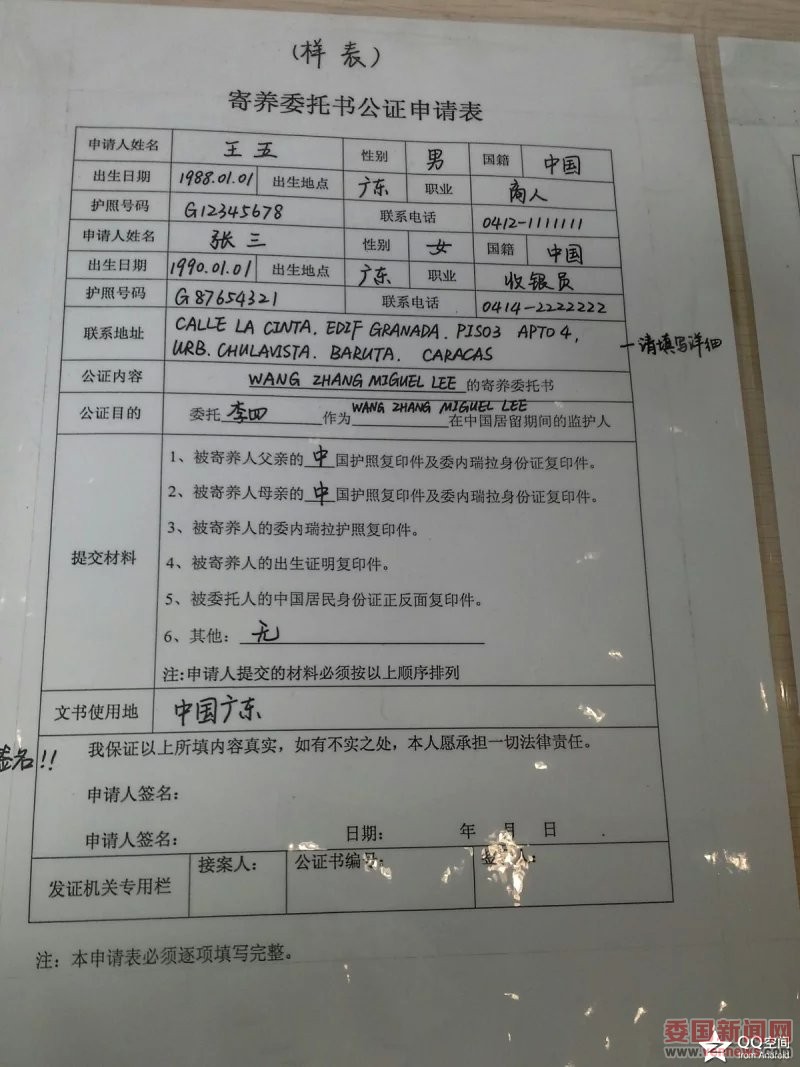 （样表）
寄养委托书公证申请表
申请人姓名 王五 性别 男 国籍 中国
出生日期 1988.01.01 出生地点 广东 职业 商人
护照号码 G12345678 联系电话 0412-1111111
申请人姓名 张三 性别 女 国籍 中国
出生日期 1990.01.01 出生地点 广东 职业 收银员
护照号码 G87654321 联系电话 0414-2222222
联系地址 CALLE LA CINTA. EDIF GRANADA. PISO3 APTO 4,
URB. CHULAVISTA. BARUTA. CARACAS
—请填写详细
公证内容 WANG ZHANG MIGUEL LEE 的寄养委托书
公证目的 委托 李四 作为 WANG ZHANG MIGUEL LEE 在中国居留期间的监护人
提交材料
1、被寄养人父亲的 中 国护照复印件及委内瑞拉身份证复印件。
2、被寄养人母亲的 中 国护照复印件及委内瑞拉身份证复印件。
3、被寄养人的委内瑞拉护照复印件。
4、被寄养人的出生证明复印件。
5、被委托人的中国居民身份证正反面复印件。
6、其他： 无
注:申请人提交的材料必须按以上顺序排列
文书使用地 中国广东
签名!!
我保证以上所填内容真实，如有不实之处，本人愿承担一切法律责任。
申请人签名：
申请人签名： 日期： 年 月 日
发证机关专用栏 接案人： 公证书编号： 人：
注：本申请表必须逐项填写完整。
委国新闻网
QQ空间
from Android